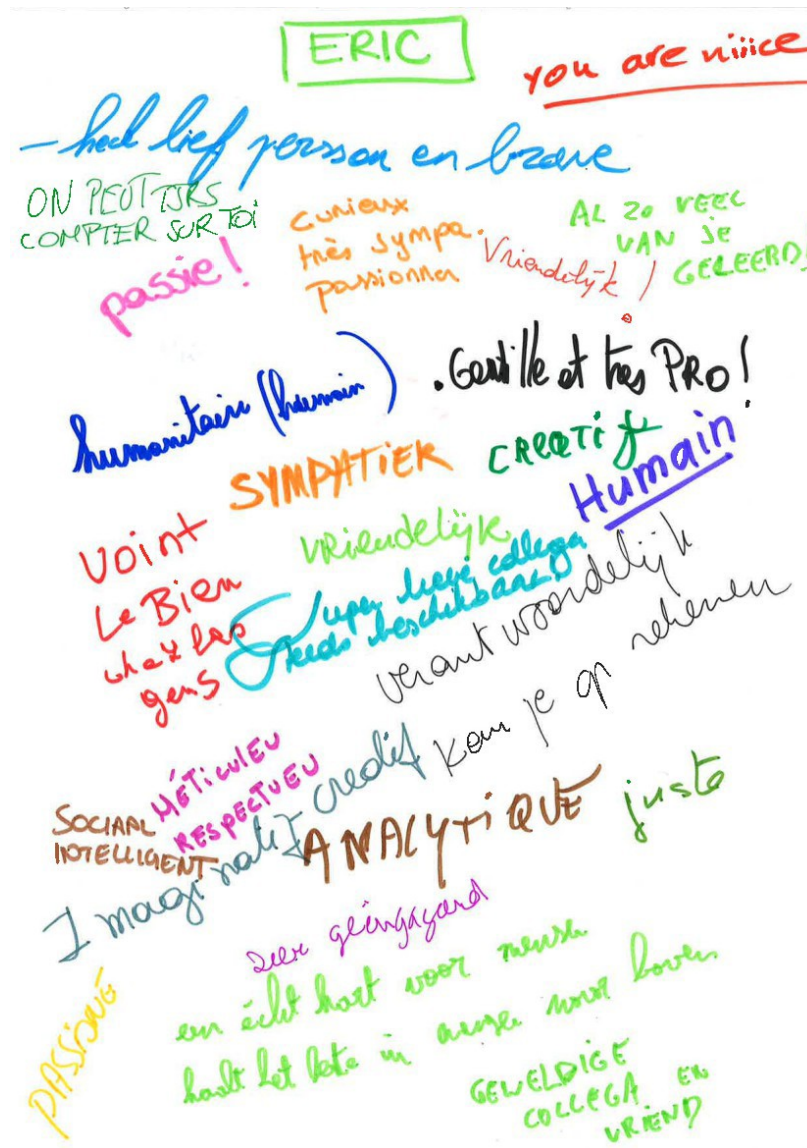 ERIC
you are niiice
- heel lief persson en brave
ON PEUT TJRS
COMPTER SUR TOI
passie!
curieux
très sympa.
passionner
Vriendelijk!
AL ZO VEEL
VAN JE
GELEERD!
humanitair (humain)
. Gentille et très PRO!
SYMPATIEK
CREATif
Humain
Voint
Le Bien
chez les
gens
vriendelijk
Super lieve collega
steeds beschikbaar
verantwoordelijk
kan je op rekenen
MÉTICULEU
RESPECTUEU
SOCIAAL
INTELLIGENT
Imaginatif
creatif
ANALYTIQUE
juste
zeer géengageerd
PASSIONÉ
een écht hart voor mensen
haalt het beste in mensen naar boven
GEWELDIGE
COLLEGA EN
VRIEND